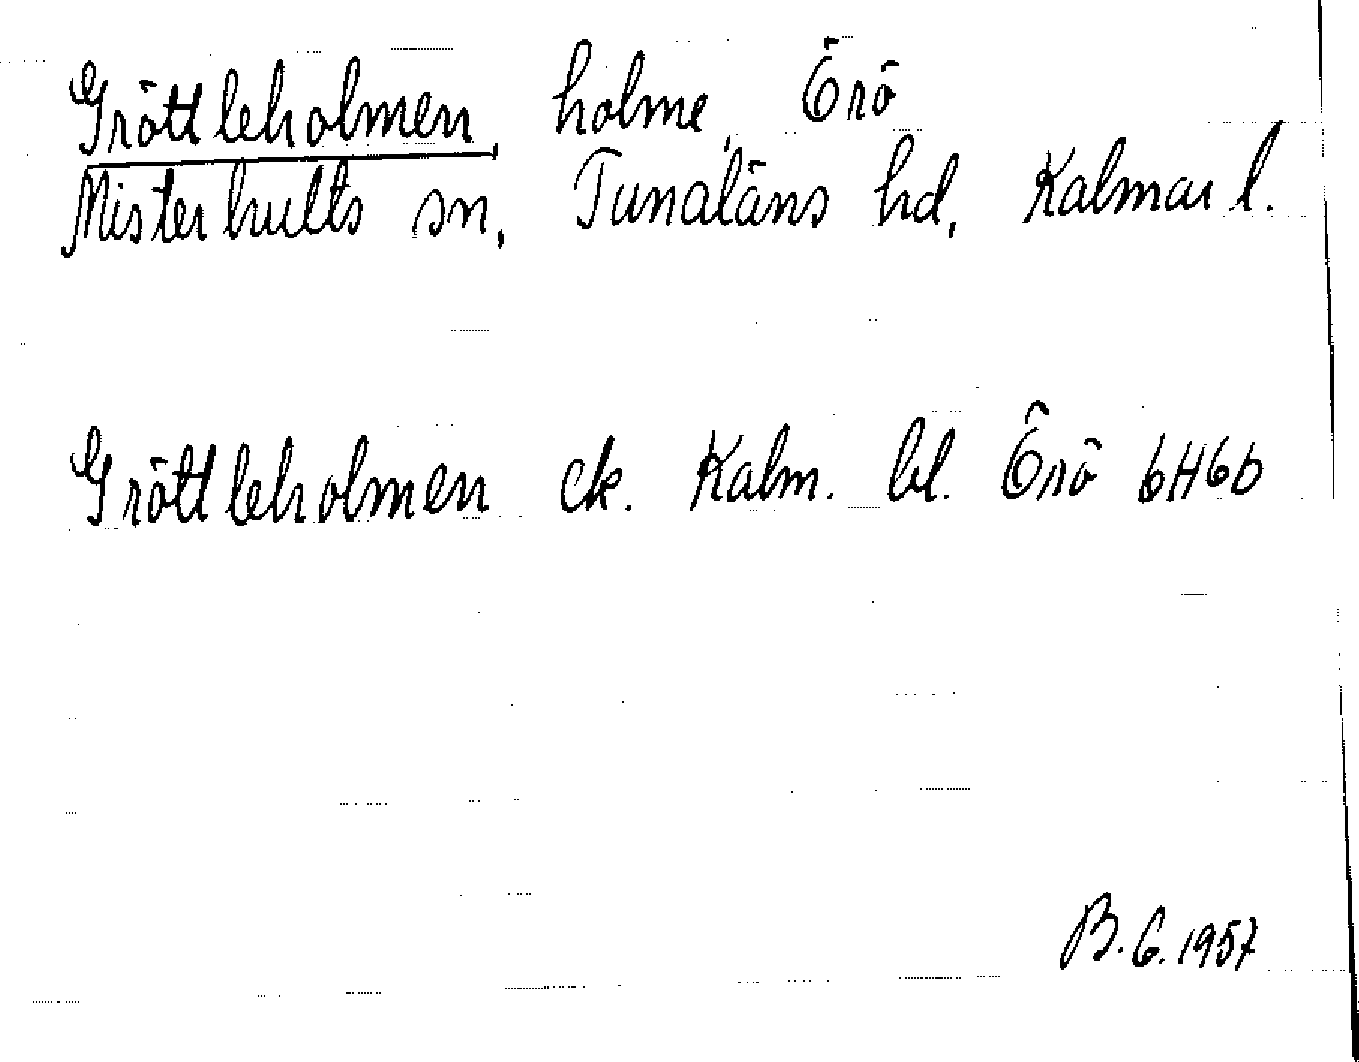 Gröttleholmen, holme, Örö
Misterhults sn, Tunaläns hd, Kalmar l.
Gröttleholmen ek. Kalm. bl. Örö 6H6b
B.G. 1957